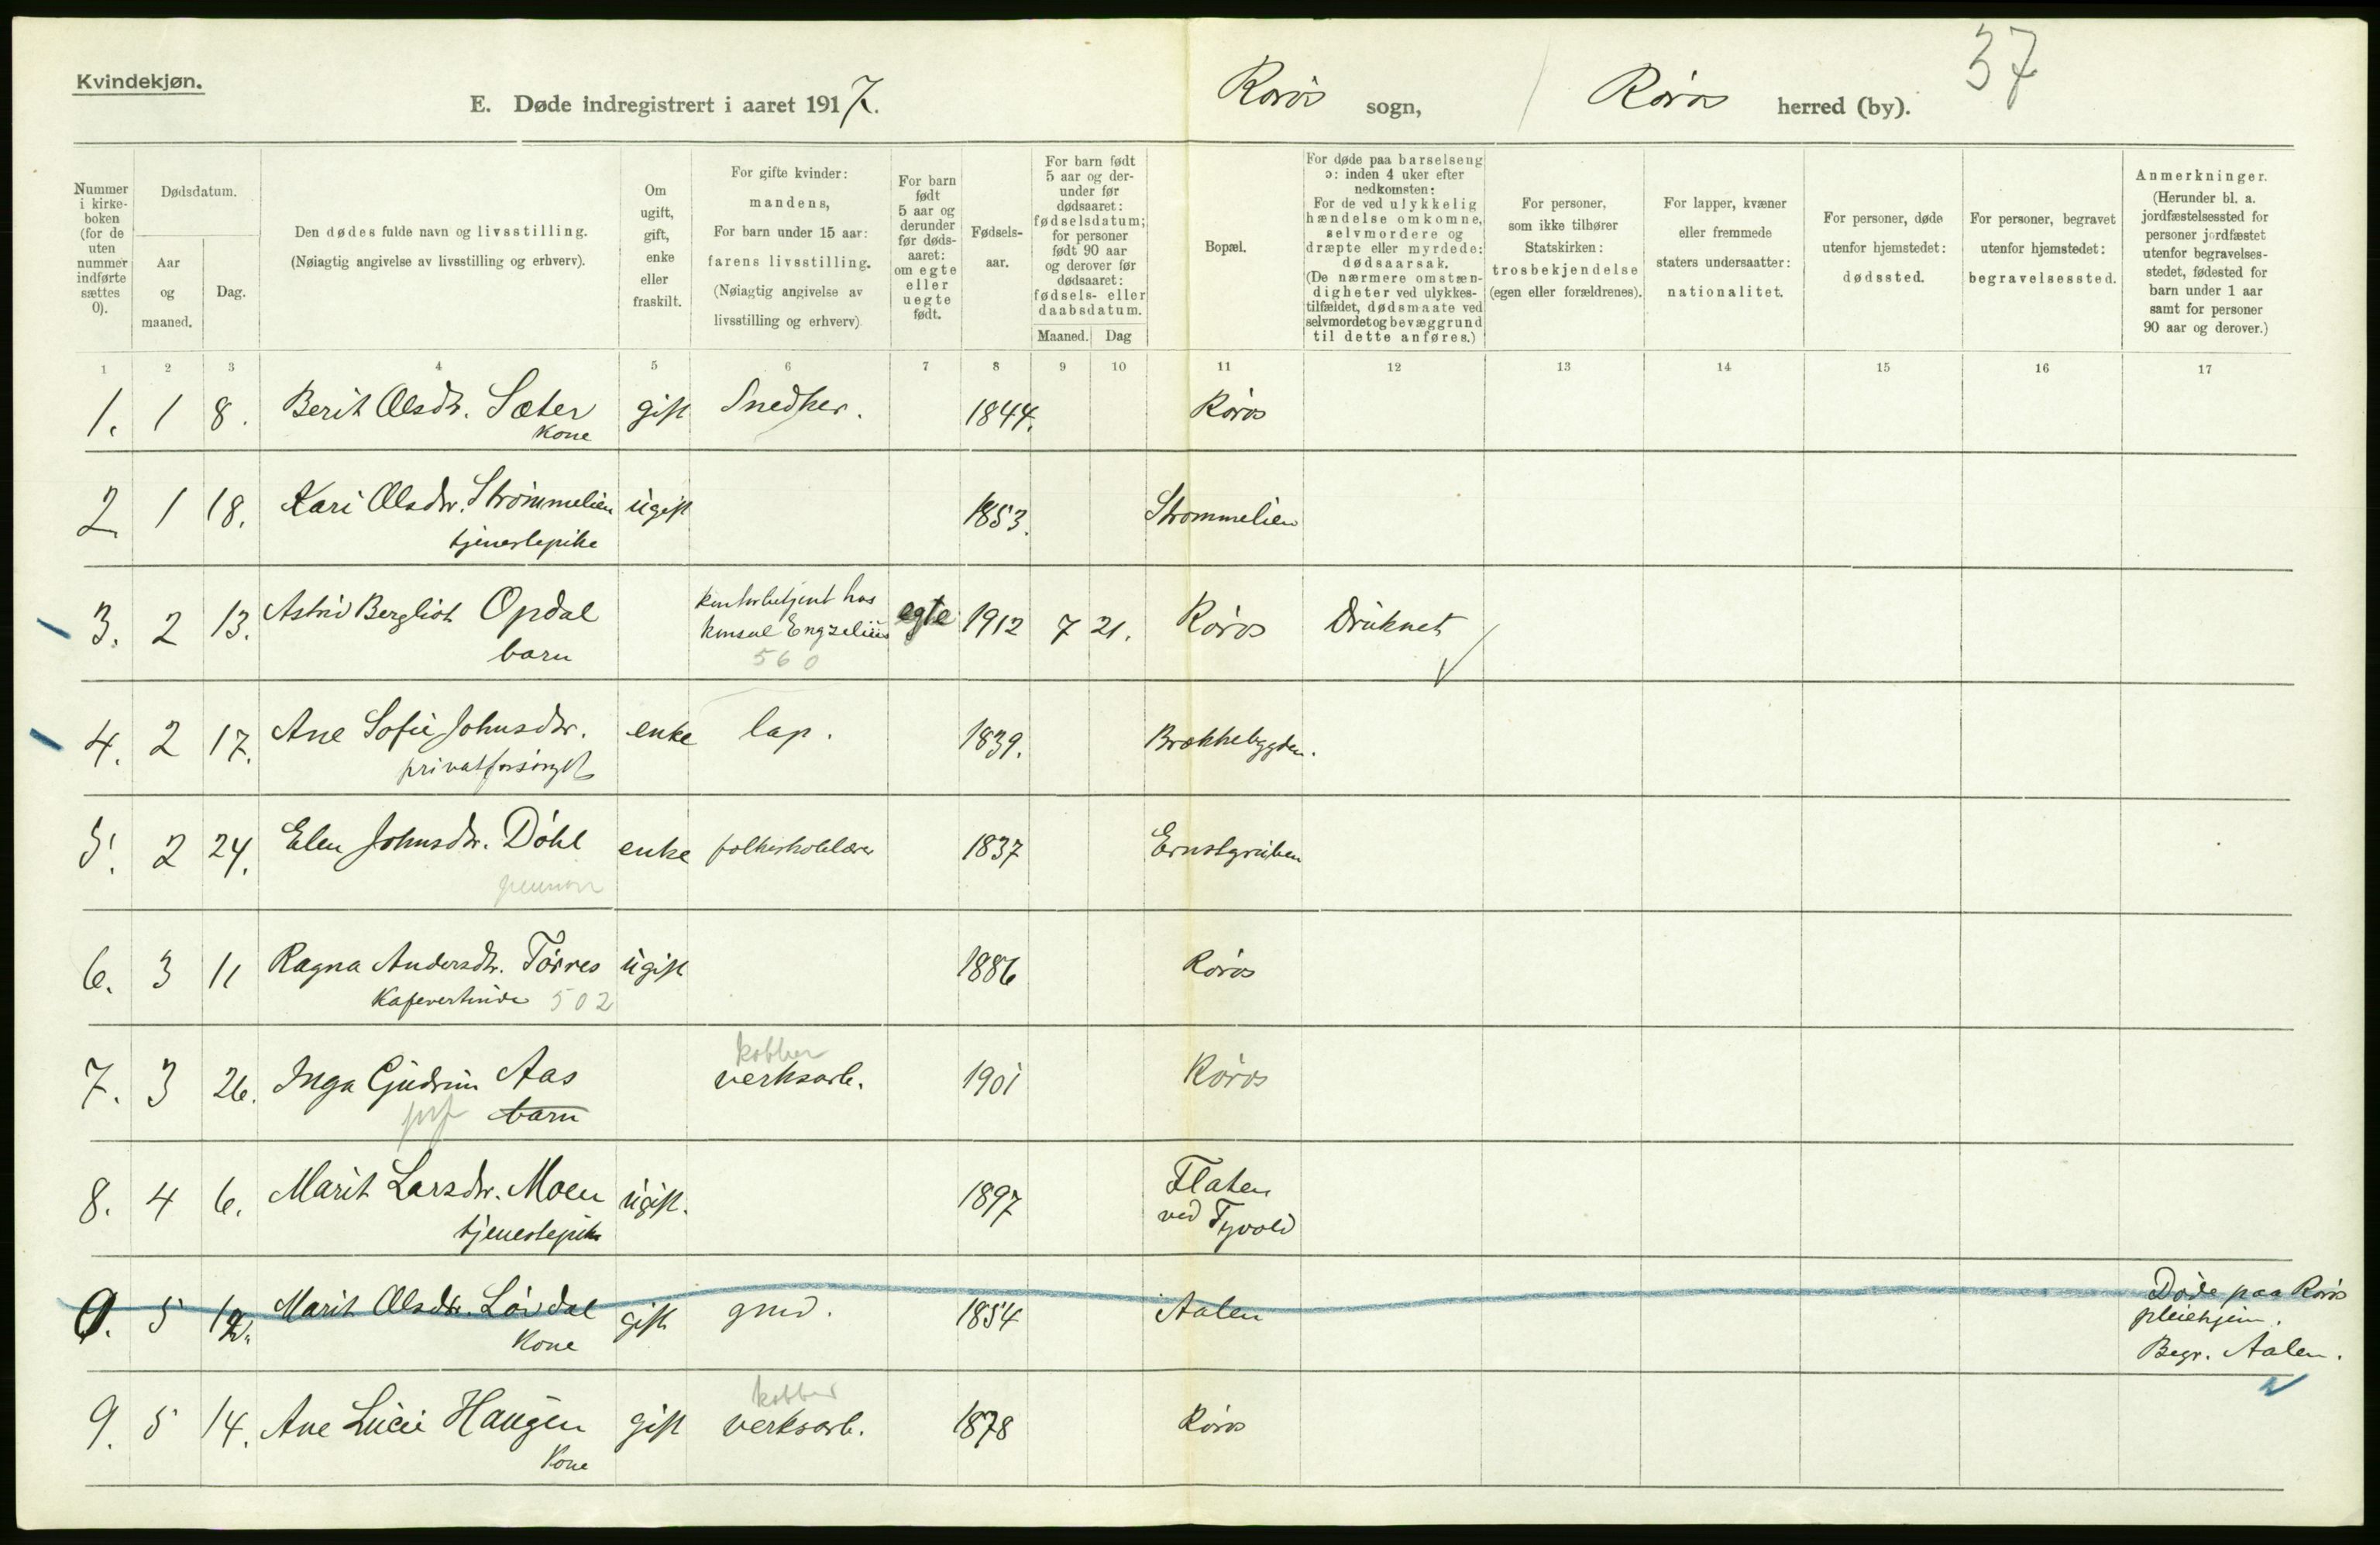 Kvindekjøn.
E. Døde indregistrert i aaret 1917.
Røros sogn, Røros herred (by).
37
Nummer i kirke-boken (for de uten nummer indførte sættes 0).
Dødsdatum.
Aar og maaned.
Dag.
Den dødes fulde navn og livsstilling.
(Nøiagtig angivelse av livsstilling og erhverv).
Om ugift, gift, enke eller fraskilt.
For gifte kvinder: mandens,
For barn under 15 aar: farens livsstilling.
(Nøiagtig angivelse av livsstilling og erhverv)
For barn født 5 aar og derunder før døds-aaret: om egte eller uegte født.
Fødsels-aar.
For barn født 5 aar og der-under før dødsaaret: fødselsdatum; for personer født 90 aar og derover før dødsaaret: fødsels- eller daabsdatum.
Maaned. Dag
Bopæl.
For døde paa barselseng ɔ: inden 4 uker efter nedkomsten:
For de ved ulykkelig hændelse omkomne, selvmordere og dræpte eller myrdede: dødsaarsak.
(De nærmere omstæn-digheter ved ulykkes-tilfældet, dødsmaate ved selvmordet og bevæggrund til dette anføres.)
For personer, som ikke tilhører Statskirken: trosbekjendelse (egen eller forældrenes).
For lapper, kvæner eller fremmede staters undersaatter: nationalitet.
For personer, døde utenfor hjemstedet: dødssted.
For personer, begravet utenfor hjemstedet: begravelsessted.
Anmerkninger.
(Herunder bl. a. jordfæstelsessted for personer jordfæstet utenfor begravelses-stedet, fødested for barn under 1 aar samt for personer 90 aar og derover.)
1 2 3 4 5 6 7 8 9 10 11 12 13 14 15 16 17
1. 1 8. Berit Olsdtr. Sæter gift Snedker. 1844. Røros
Kone
2 1 18. Kari Olsdtr. Strømmelien ugift 1853. Strømmelien
tjenestepike
3. 2 13. Astrid Bergliot Opdal kontorbetjent hos egte 1912 7 21. Røros Druknet
barn konsul Engzelius
560
4. 2 17. Ane Sofie Johnsdtr. enke lap. 1839. Brækkebygden.
privatforsørget
5. 2 24. Elen Johnsdtr. Døhl enke folkeskolelærer 1837 Ernstgruben
pension
6. 3 11 Ragna Andersdtr. Tørres ugift 1886 Røros
Kafevertinde 502
kobber
7. 3 26. Inga Gudrun Aas verksarb. 1901 Røros
barn
8. 4 6. Marit Larsdtr. Moen ugift. 1897 Flaten
tjenestepike ved Tyvold
0. 5 12. Marit Olsdtr. Løvdal gift gmd. 1854 Aalen Døde paa Røros
Kone pleiehjem.
Begr. Aalen.
kobber
9. 5 14. Ane Lucie Haugen gift verksarb. 1878 Røros
Kone